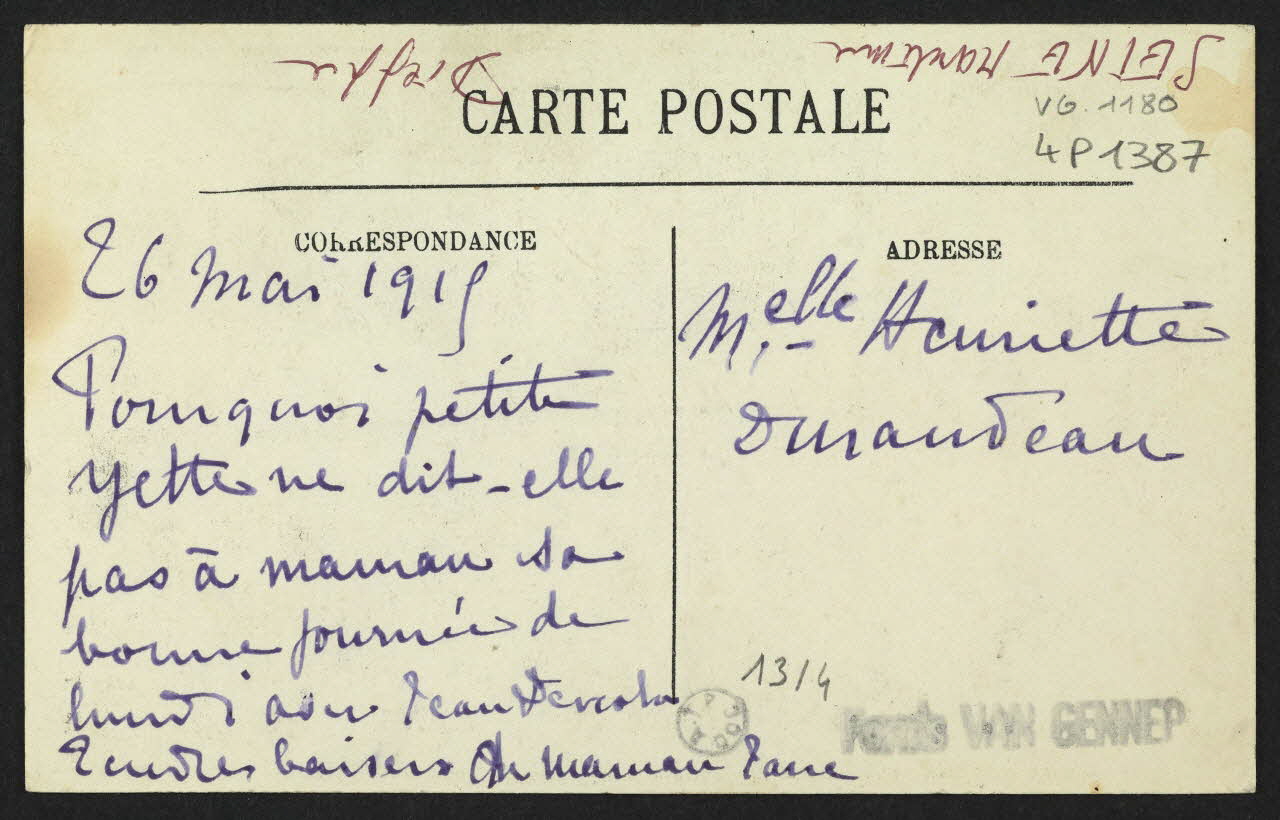 SEINE Maritime
Dieppe
CARTE POSTALE
VG. 1180
4P1387
CORRESPONDANCE
26 mai 1915
Pourquoi petite
Yette ne dit-elle
pas à maman sa
bonne journée de
lundi avec Jean
Tendres baisers de maman
ADRESSE
Melle Henriette
Durandeau
13/4
Fonds VAN GENNEP